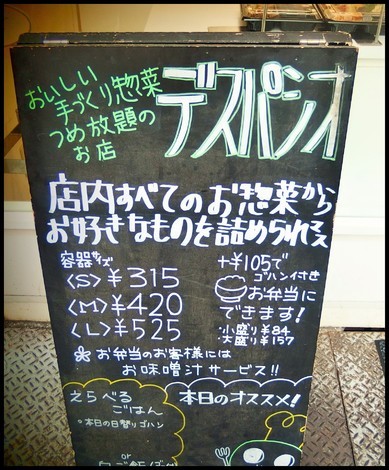 おいしい
手づくり惣菜
つめ放題の
お店
デスパシオ
店内すべてのお惣菜から
お好きなものを詰められます
容器サイズ
〈S〉¥315
〈M〉¥420
〈L〉¥525
+¥105で
ゴハン付き
お弁当に
できます!
・小盛り¥84
・大盛り¥157
お弁当のお客様には
お味噌汁サービス!!
えらべる
ごはん
*本日の日替りゴハン
or
本日のオススメ!